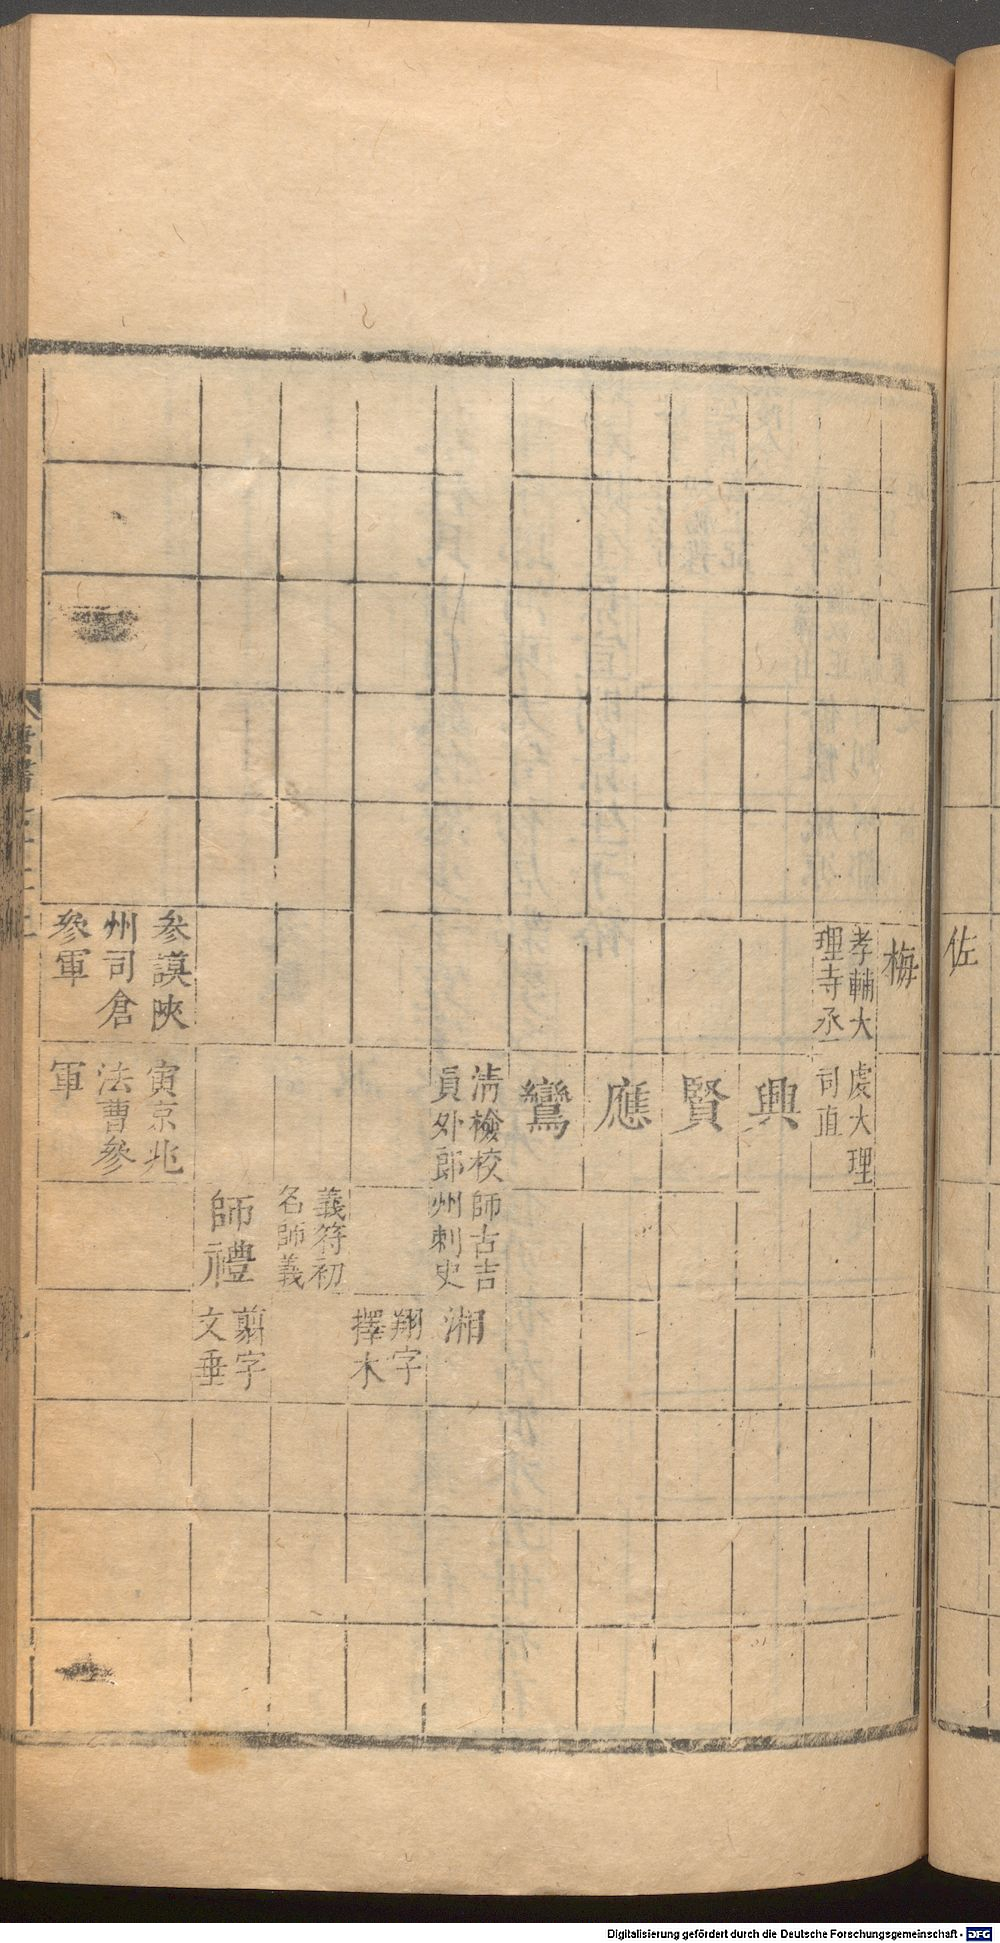 佐
梅
孝輔大
理寺丞
處大理
司直
興
賢
應
鸞
清檢校
員外郎
師古吉
州刺史
湘
翔字
擇木
義符初
名師義
師禮
翦字
文垂
參謨陝
州司倉
參軍
寅京兆
法曹參
軍
Digitalisierung gefördert durch die Deutsche Forschungsgemeinschaft - DFG